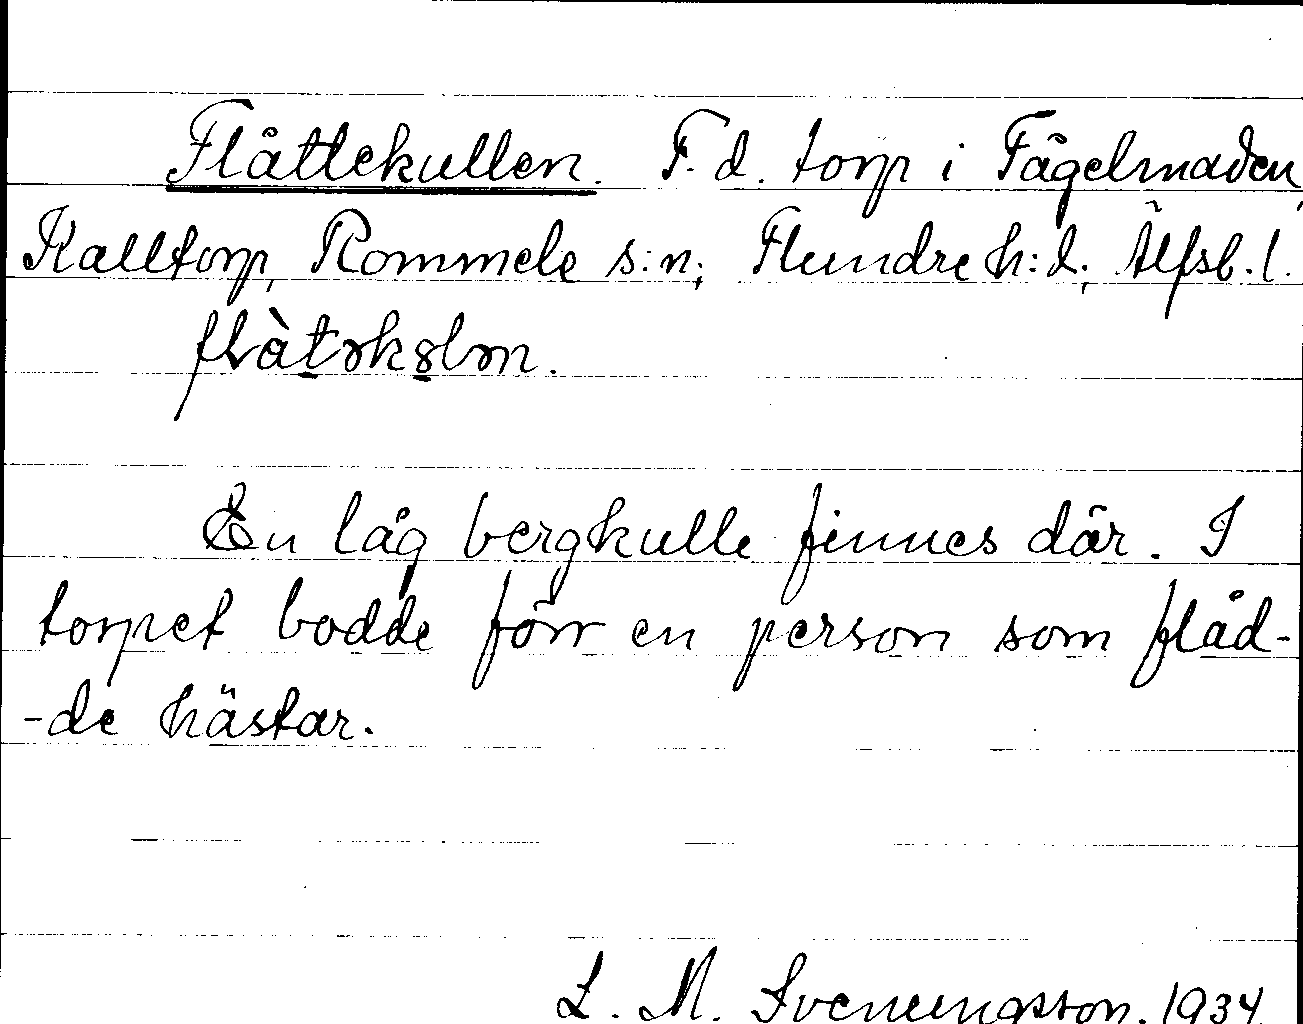 Flåttekullen. F. d. torp i Fågelmaden,
Kalltorp, Rommele s:n; Flundre h:d; Älfsb. l.
En låg bergkulle finnes där. I
torpet bodde förr en person som flåd-
-de hästar.
L. M. Svenungsson. 1934.